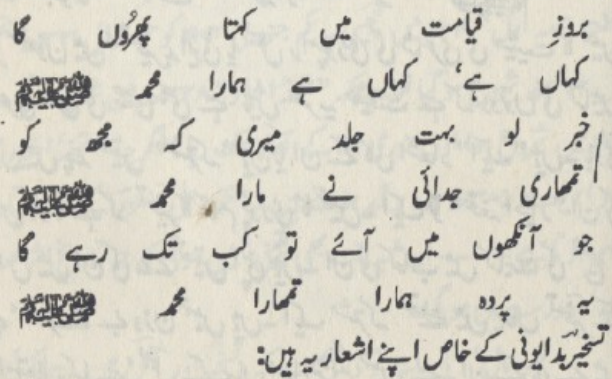 بروزِ قیامت میں کہتا پھرُوں گا
کہاں ہے، کہاں ہے ہمارا محمد ﷺ
خبر لو بہت جلد میری کہ مجھ کو
تمھاری جدائی نے مارا محمد ﷺ
جو آنکھوں میں آئے تو کب تک رہے گا
یہ پردہ ہمارا تمھارا محمد ﷺ
تسخیر بدایونی کے خاص اپنے اشعار یہ ہیں: